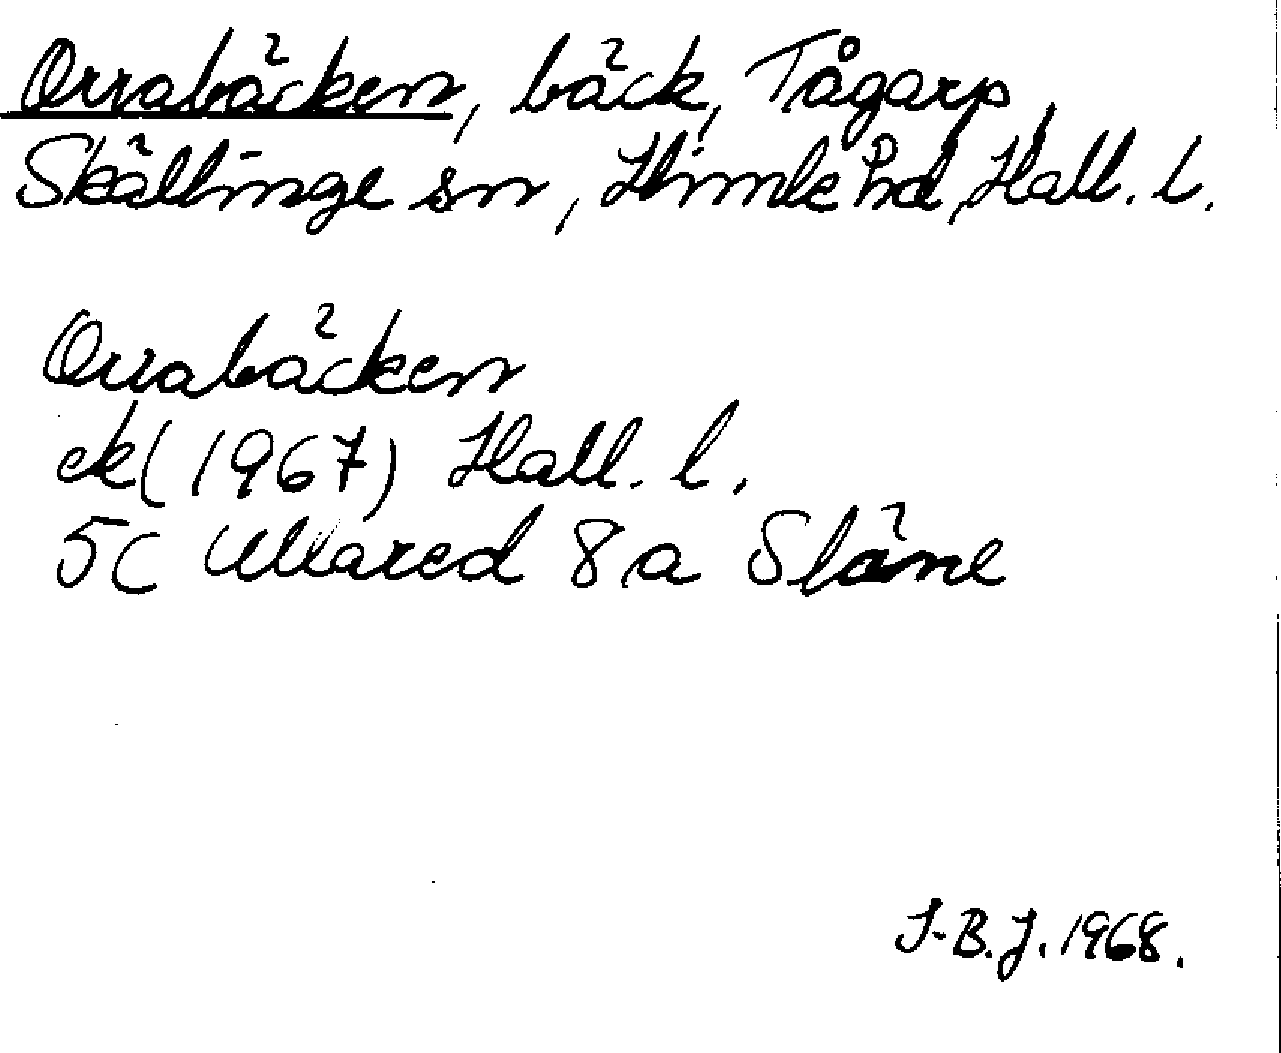 Orrabäcken, bäck, Tågarp,
Skällinge sn, Himle hd, Hall. l.
Orrabäcken
ek (1967) Hall. l.
5C Ullared 8a Släne
J-B.J. 1968.